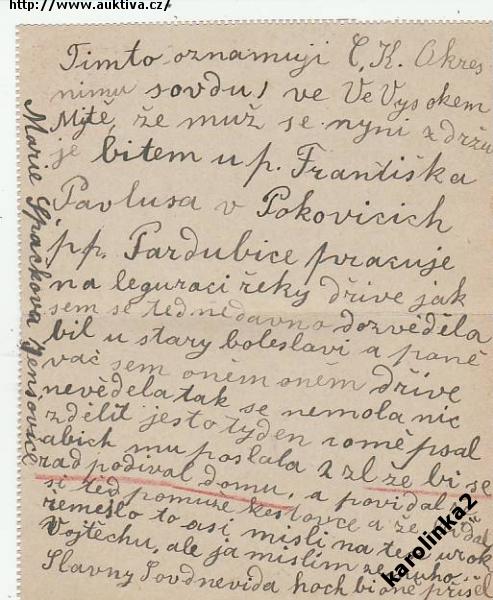 http://www.auktiva.cz/
Timto oznamuji C. K. Okres
nimu sovdu, ve Ve Vysokem
Mýtě, že muž se nyni zdržu
je bitem u p. Františka
Pavlusa v Pokovicich
pp. Pardubice pracuje
na leguraci řeky dřive jak
sem se ted nedavno dozvěděla
bil u stary boleslavi a poně
vač sem oněm dřive
nevěděla tak se nemola nic
zdělit jesto tyden comě psal
abich mu poslala 2 zl že bi se
rad podival domu, a povidal
si ted pomuže a ze
řemeslo to asi misli na ten urok
Vojtěchu, ale ja mislim ze
Slavny Sovd nevida hoch bi one přišel
Marie Spačkova
karolinka2